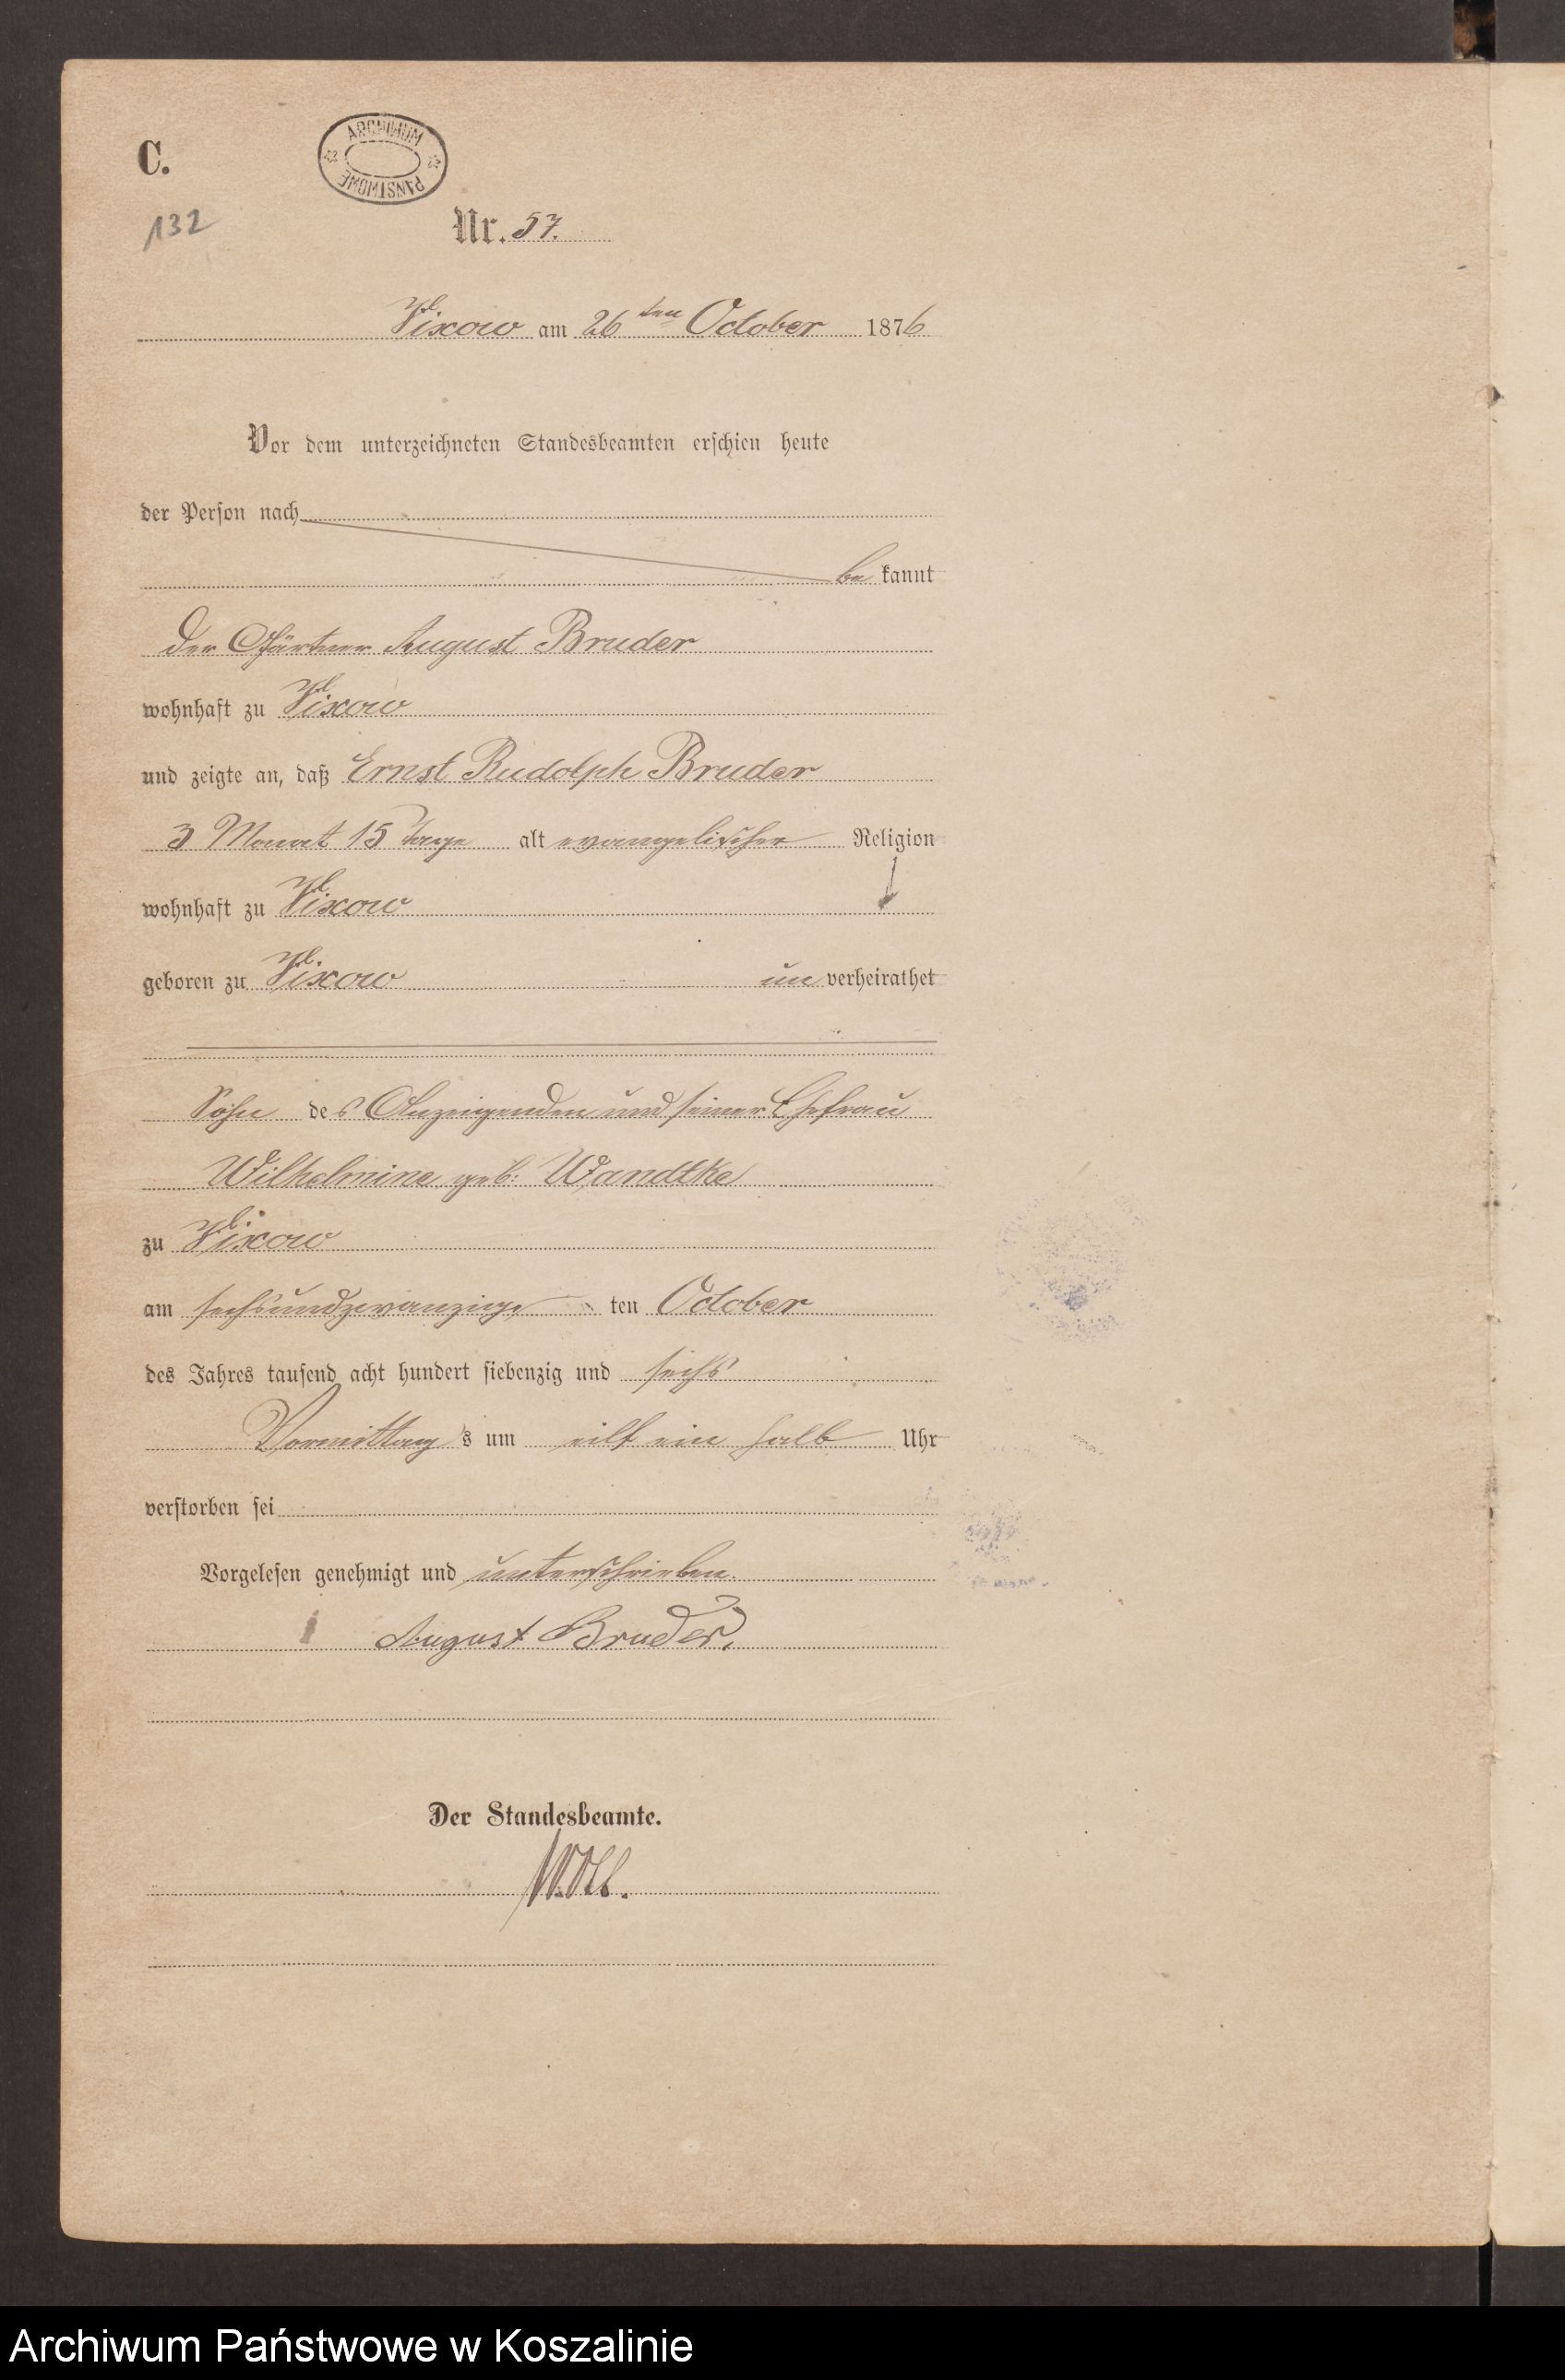 C.
ARCHIWUM
PAŃSTWOWE
132
Nr. 57.
Vixow am 26ten October 1876
Vor dem unterzeichneten Standesbeamten erschien heute
der Person nach
be kannt
der Gärtner August Bruder
wohnhaft zu Vixow
und zeigte an, daß Ernst Rudolph Bruder
3 Monat 15 Tage alt evangelischer Religion
wohnhaft zu Vixow
geboren zu Vixow un verheirathet
Sohn des Anzeigenden und seiner Ehefrau
Wilhelmine geb: Wandtke
zu Vixow
am sechsundzwanzigs ten October
des Jahres tausend acht hundert siebenzig und sechs
Vormittag s um eilf ein halb Uhr
verstorben sei
Vorgelesen genehmigt und unterschrieben.
August Bruder.
Der Standesbeamte.
Archiwum Państwowe w Koszalinie